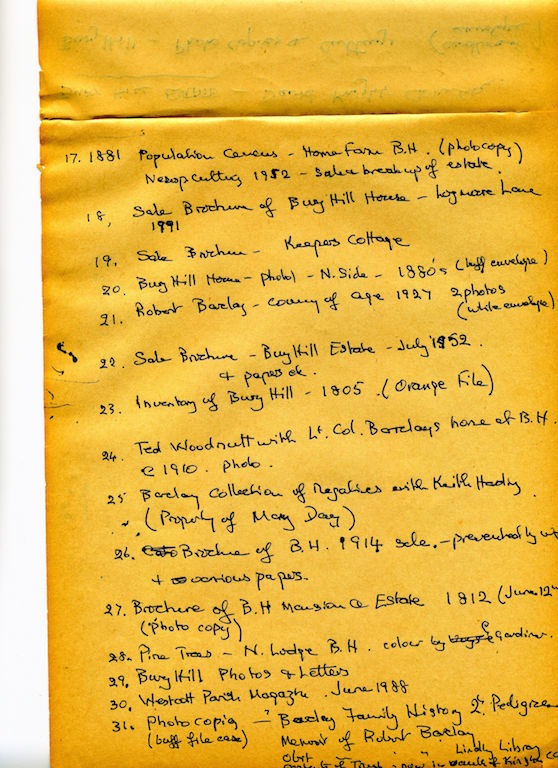 17. 1881 Population Census - Home Farm B.H. (photocopy)
Newsp cutting 1952 - sale & breakup of estate.
18, Sale Brochure of Bury Hill House - Logmore Lane
1991
19. Sale Brochure - Keepers Cottage
20. Bury Hill House - photo - N. Side - 1880's (buff envelope)
21. Robert Barclay - coming of age 1927 2 photos
(white envelope)
22. Sale Brochure - Bury Hill Estate - July 1952.
+ papers etc.
23. Inventory of Bury Hill - 1805. (Orange File)
24. Ted Woodnutt with Lt. Col. Barclays horse at B.H.
c 1910. photo.
25 Barclay Collection of Negatives with Keith Harding
(Property of Mary Day)
26. Brochure of B.H. 1914 sale. - prevented by
+ various papers.
27. Brochure of B.H Mansion & Estate 1812 (June 12th
(photo copy)
28. Pine Trees - N. Lodge B.H. colour by Gardiner.
29. Bury Hill Photos & Letters
30. Westcott Parish Magazine. June 1988
31. Photocopies - Barclay Family History & Pedigree
(buff file case) Memoir of Robert Barclay
Obit " " " Lindley Library